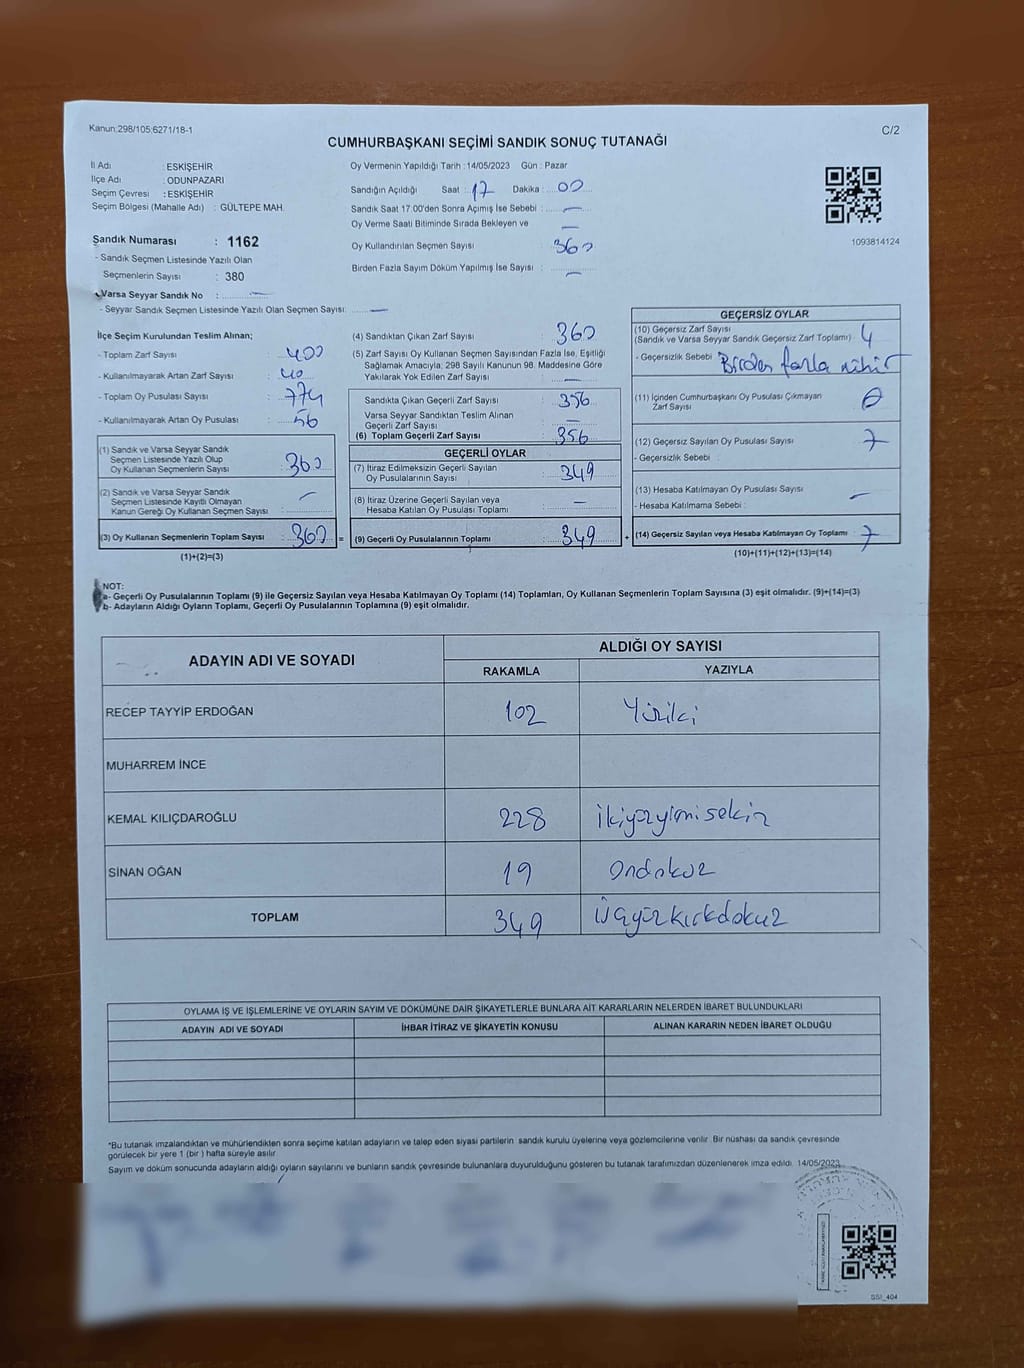 Kanun:298/105;6271/18-1
C/2
CUMHURBAŞKANI SEÇİMİ SANDIK SONUÇ TUTANAĞI
İl Adı : ESKİŞEHİR
İlçe Adı : ODUNPAZARI
Seçim Çevresi : ESKİŞEHİR
Seçim Bölgesi (Mahalle Adı) : GÜLTEPE MAH.
Sandık Numarası : 1162
- Sandık Seçmen Listesinde Yazılı Olan
Seçmenlerin Sayısı : 380
Varsa Seyyar Sandık No : —
- Seyyar Sandık Seçmen Listesinde Yazılı Olan Seçmen Sayısı: —
Oy Vermenin Yapıldığı Tarih : 14/05/2023 Gün : Pazar
Sandığın Açıldığı Saat : 17 Dakika : 00
Sandık Saat 17.00'den Sonra Açımış İse Sebebi : —
Oy Verme Saati Bitiminde Sırada Bekleyen ve —
Oy Kullandırılan Seçmen Sayısı : 360
Birden Fazla Sayım Döküm Yapılmış İse Sayısı : —
1093814124
İlçe Seçim Kurulundan Teslim Alınan;
- Toplam Zarf Sayısı : 400
- Kullanılmayarak Artan Zarf Sayısı : 40
- Toplam Oy Pusulası Sayısı : 774
- Kullanılmayarak Artan Oy Pusulası : 56
(1) Sandık ve Varsa Seyyar Sandık
Seçmen Listesinde Yazılı Olup
Oy Kullanan Seçmenlerin Sayısı : 360
(2) Sandık ve Varsa Seyyar Sandık
Seçmen Listesinde Kayıtlı Olmayan
Kanun Gereği Oy Kullanan Seçmen Sayısı : —
(3) Oy Kullanan Seçmenlerin Toplam Sayısı : 360 =
(1)+(2)=(3)
(4) Sandıktan Çıkan Zarf Sayısı : 360
(5) Zarf Sayısı Oy Kullanan Seçmen Sayısından Fazla İse, Eşitliği
Sağlamak Amacıyla; 298 Sayılı Kanunun 98. Maddesine Göre
Yakılarak Yok Edilen Zarf Sayısı : —
Sandıkta Çıkan Geçerli Zarf Sayısı : 356
Varsa Seyyar Sandıktan Teslim Alınan
Geçerli Zarf Sayısı : —
(6) Toplam Geçerli Zarf Sayısı : 356
GEÇERLİ OYLAR
(7) İtiraz Edilmeksizin Geçerli Sayılan
Oy Pusulalarının Sayısı : 349
(8) İtiraz Üzerine Geçerli Sayılan veya
Hesaba Katılan Oy Pusulası Toplamı : —
(9) Geçerli Oy Pusulalarının Toplamı : 349 +
GEÇERSİZ OYLAR
(10) Geçersiz Zarf Sayısı
(Sandık ve Varsa Seyyar Sandık Geçersiz Zarf Toplamı) : 4
- Geçersizlik Sebebi : Birden fazla mühür
(11) İçinden Cumhurbaşkanı Oy Pusulası Çıkmayan
Zarf Sayısı : 0
(12) Geçersiz Sayılan Oy Pusulası Sayısı : 7
- Geçersizlik Sebebi :
(13) Hesaba Katılmayan Oy Pusulası Sayısı : —
- Hesaba Katılmama Sebebi :
(14) Geçersiz Sayılan veya Hesaba Katılmayan Oy Toplamı : 7
(10)+(11)+(12)+(13)=(14)
NOT:
a- Geçerli Oy Pusulalarının Toplamı (9) ile Geçersiz Sayılan veya Hesaba Katılmayan Oy Toplamı (14) Toplamları, Oy Kullanan Seçmenlerin Toplam Sayısına (3) eşit olmalıdır. (9)+(14)=(3)
b- Adayların Aldığı Oyların Toplamı, Geçerli Oy Pusulalarının Toplamına (9) eşit olmalıdır.
ADAYIN ADI VE SOYADI
ALDIĞI OY SAYISI
RAKAMLA YAZIYLA
RECEP TAYYİP ERDOĞAN 102 Yüziki
MUHARREM İNCE
KEMAL KILIÇDAROĞLU 228 ikiyüzyirmisekiz
SİNAN OĞAN 19 Ondokuz
TOPLAM 349 Üçyüzkırkdokuz
OYLAMA İŞ VE İŞLEMLERİNE VE OYLARIN SAYIM VE DÖKÜMÜNE DAİR ŞİKAYETLERLE BUNLARA AİT KARARLARIN NELERDEN İBARET BULUNDUKLARI
ADAYIN ADI VE SOYADI İHBAR İTİRAZ VE ŞİKAYETİN KONUSU ALINAN KARARIN NEDEN İBARET OLDUĞU
*Bu tutanak imzalandıktan ve mühürlendikten sonra seçime katılan adayların ve talep eden siyasi partilerin sandık kurulu üyelerine veya gözlemcilerine verilir. Bir nüshası da sandık çevresinde
görülecek bir yere 1 (bir ) hafta süreyle asılır.
Sayım ve döküm sonucunda adayların aldığı oyların sayılarını ve bunların sandık çevresinde bulunanlara duyurulduğunu gösteren bu tutanak tarafımızdan düzenlenerek imza edildi. 14/05/2023
SSI_404